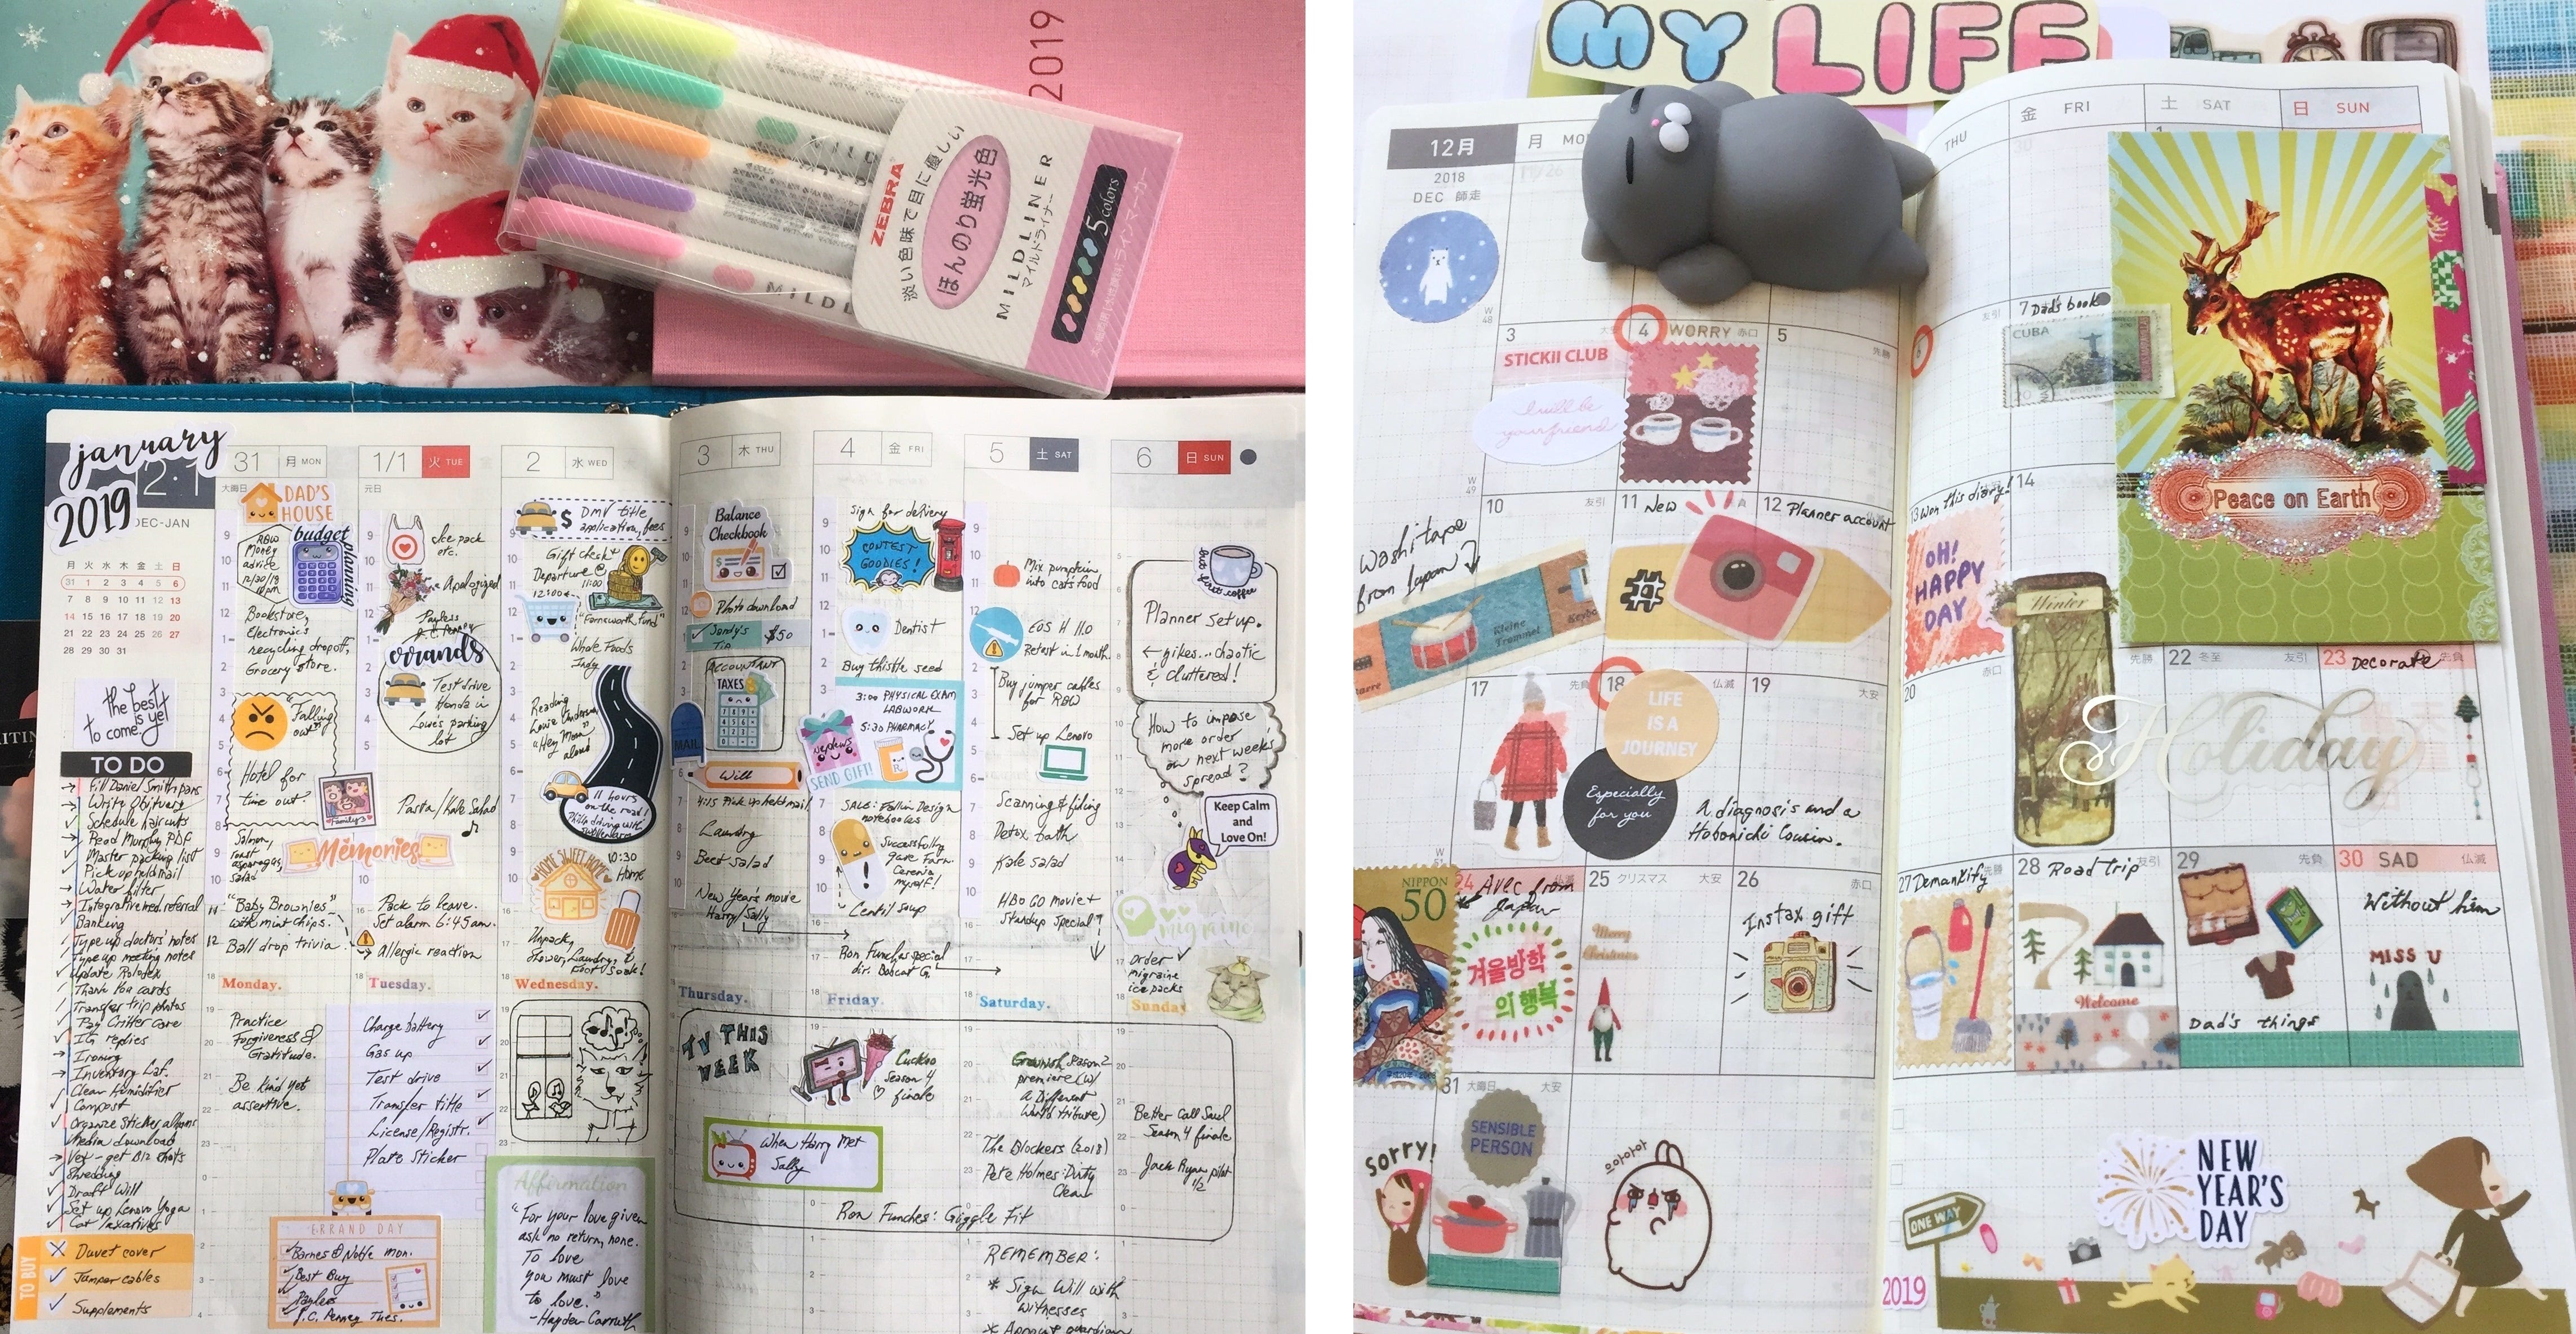 2019
ZEBRA
淡い色味で目に優しい
ほんのり蛍光色
MILDLINER
マイルドライナー
5 colors
ラインマーカー
january
2019
DEC-JAN
月 火 水 木 金 土 日
31 1 2 3 4 5 6
7 8 9 10 11 12 13
14 15 16 17 18 19 20
21 22 23 24 25 26 27
28 29 30 31
the best
is yet
to come
TO DO
Fill Daniel Smith pans
Write Obituary
Schedule haircuts
Read Murphy PDF
Master packing list
Pick up held mail
Water filter
Integrative med referral
Banking
Type up doctors' notes
Type up meeting notes
Update Rolodex
Thank You cards
Transfer trip photos
Pay Critter Care
IG replies
Ironing
Inventory
Clean Humidifier
Compost
Organize Sticker albums
Media download
Vet - get B12 shots
Shredding
Draft Will
Set up Lenovo Yoga
Cat laxatives
TO BUY
Duvet cover
Jumper cables
Supplements
31 月 MON
大晦日
DAD'S
HOUSE
budget
planning
R&W
Money
advice
12/30/18
10pm
Bookstore,
Electronics
recycling dropoff,
Grocery store.
"Falling
out"
Hotel for
time out!
Family
Salmon,
roast
asparagus,
salad
Memories
"Baby Brownies"
with mint chips.
Ball drop trivia
Monday.
Practice
Forgiveness &
Gratitude.
Be kind yet
assertive.
1/1 火 TUE
元日
Ice pack
etc.
Apologized
Payless
J.C. Penney
errands
Test drive
Honda in
Lowe's parking
lot
Pasta/Kale Salad
Pack to leave.
Set alarm 6:45am.
Allergic reaction
Tuesday.
Charge battery
Gas up
Test drive
Transfer title
License/Registr.
Plate Sticker
ERRAND DAY
Barnes & Noble mon.
Best Buy
Payless
J.C. Penney Tues.
2 水 WED
DMV title
application, fees
Gift check
Departure @
11:00
12:00
"Farnsworth Fund"
Whole Foods
Indy
Reading
Louie Anderson
"Hey Mom"
aloud
11 hours
on the road!
HOME SWEET HOME
10:30
Home
Unpack,
Shower, Laundry, &
Foot soak!
Wednesday.
Affirmation
"For your love given
ask no return, none.
To love
you must love
to love."
-Hayden Carruth
3 木 THU
Balance
Checkbook
Photo download
Jandy's
Tip
$50
ACCOUNTANT
TAXES
MAIL
Will
4:15 Pick up held mail
Laundry
Beet salad
New Year's movie
Harry/Sally
Thursday.
TV THIS
WEEK
When Harry Met
Sally
4 金 FRI
Sign for delivery
CONTEST
GOODIES!
Dentist
Buy thistle seed
3:00 PHYSICAL EXAM
LABWORK
5:30 PHARMACY
SEND GIFT!
SALE: Fallin Design
notebooks
Successfully
gave Farn.
Cerenia
myself!
Lentil soup
Ron Funches special
dir. Bobcat G.
Friday.
Cuckoo
Season 4
finale
Ron Funches: Giggle Fit
5 土 SAT
Mix pumpkin
into cat's food
EOS H 11.0
Retest in 1 month.
Buy jumper cables
for R&W
Set up Lenovo
Scanning & filing
Detox bath
Kale salad
HBO GO movie +
standup special
Saturday.
Grownish Season 2
premiere (w/
a Different
World tribute)
The Blockers (2018)
Pete Holmes: Dirty
Clean
REMEMBER:
* Sign Will with
witnesses
6 日 SUN
but first, coffee
Planner set up.
← yikes... chaotic
& cluttered!
How to impose
more order
on next week's
spread?
Keep Calm
and
Love On!
migraine
Order ✓
migraine
ice packs
Sunday
Better Call Saul
Season 4 finale
Jack Ryan pilot
1/2
MY LIFE
12月
2018
DEC 師走
月 MO
THU
金 FRI
土 SAT
日 SUN
3
STICKII CLUB
I will be
your friend
4 WORRY 赤口
5 先勝
友引
7 Dad's book
CUBA
Peace on Earth
Washi tape
from Japan
10 友引
11 New
12 Planner account
Kleine
Trommel
#
13 Won this diary!
OH!
HAPPY
DAY
14
Winter
17 先負
18 仏滅
LIFE
IS A
JOURNEY
Especially
for you
19 大安
A diagnosis and a
Hobonichi Cousin.
20 赤口
先勝
22 冬至 友引
23 Decorate 先負
Holiday
NIPPON
50
24 Avec from
Japan
겨울방학
의 행복
25 クリスマス 大安
Merry
Christmas
26 赤口
Instax gift
27 Demantify 先勝
28 Road trip 友引
Welcome
29 先負
Dad's things
30 SAD 仏滅
Without him
MISS U
31 大晦日 大安
sorry!
SENSIBLE
PERSON
으아아아
ONE WAY
2019
NEW
YEAR'S
DAY